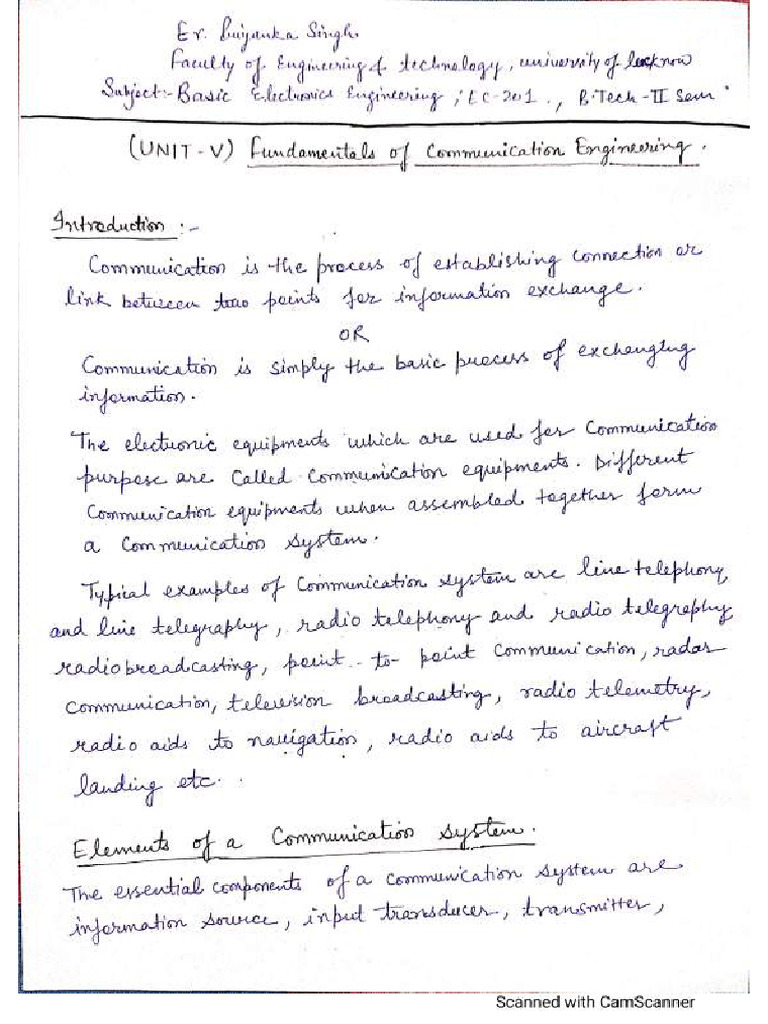 Er. Priyanka Singh
Faculty of Engineering & technology, university of lucknow
Subject:- Basic Electronics Engineering, EC-201., B.Tech-II Sem
(UNIT-V) Fundamentals of Communication Engineering.
Introduction :-
Communication is the process of establishing connection or
link between two points for information exchange.
OR
Communication is simply the basic process of exchanging
information.
The electronic equipments which are used for communication
purpose are called communication equipments. Different
communication equipments when assembled together form
a communication system.
Typical examples of communication system are line telephony,
and line telegraphy, radio telephony and radio telegraphy
radiobroadcasting, point-to-point communication, radar
communication, television broadcasting, radio telemetry,
radio aids to navigation, radio aids to aircraft
landing etc.
Elements of a Communication system.
The essential components of a communication system are
information source, input transducer, transmitter,
Scanned with CamScanner